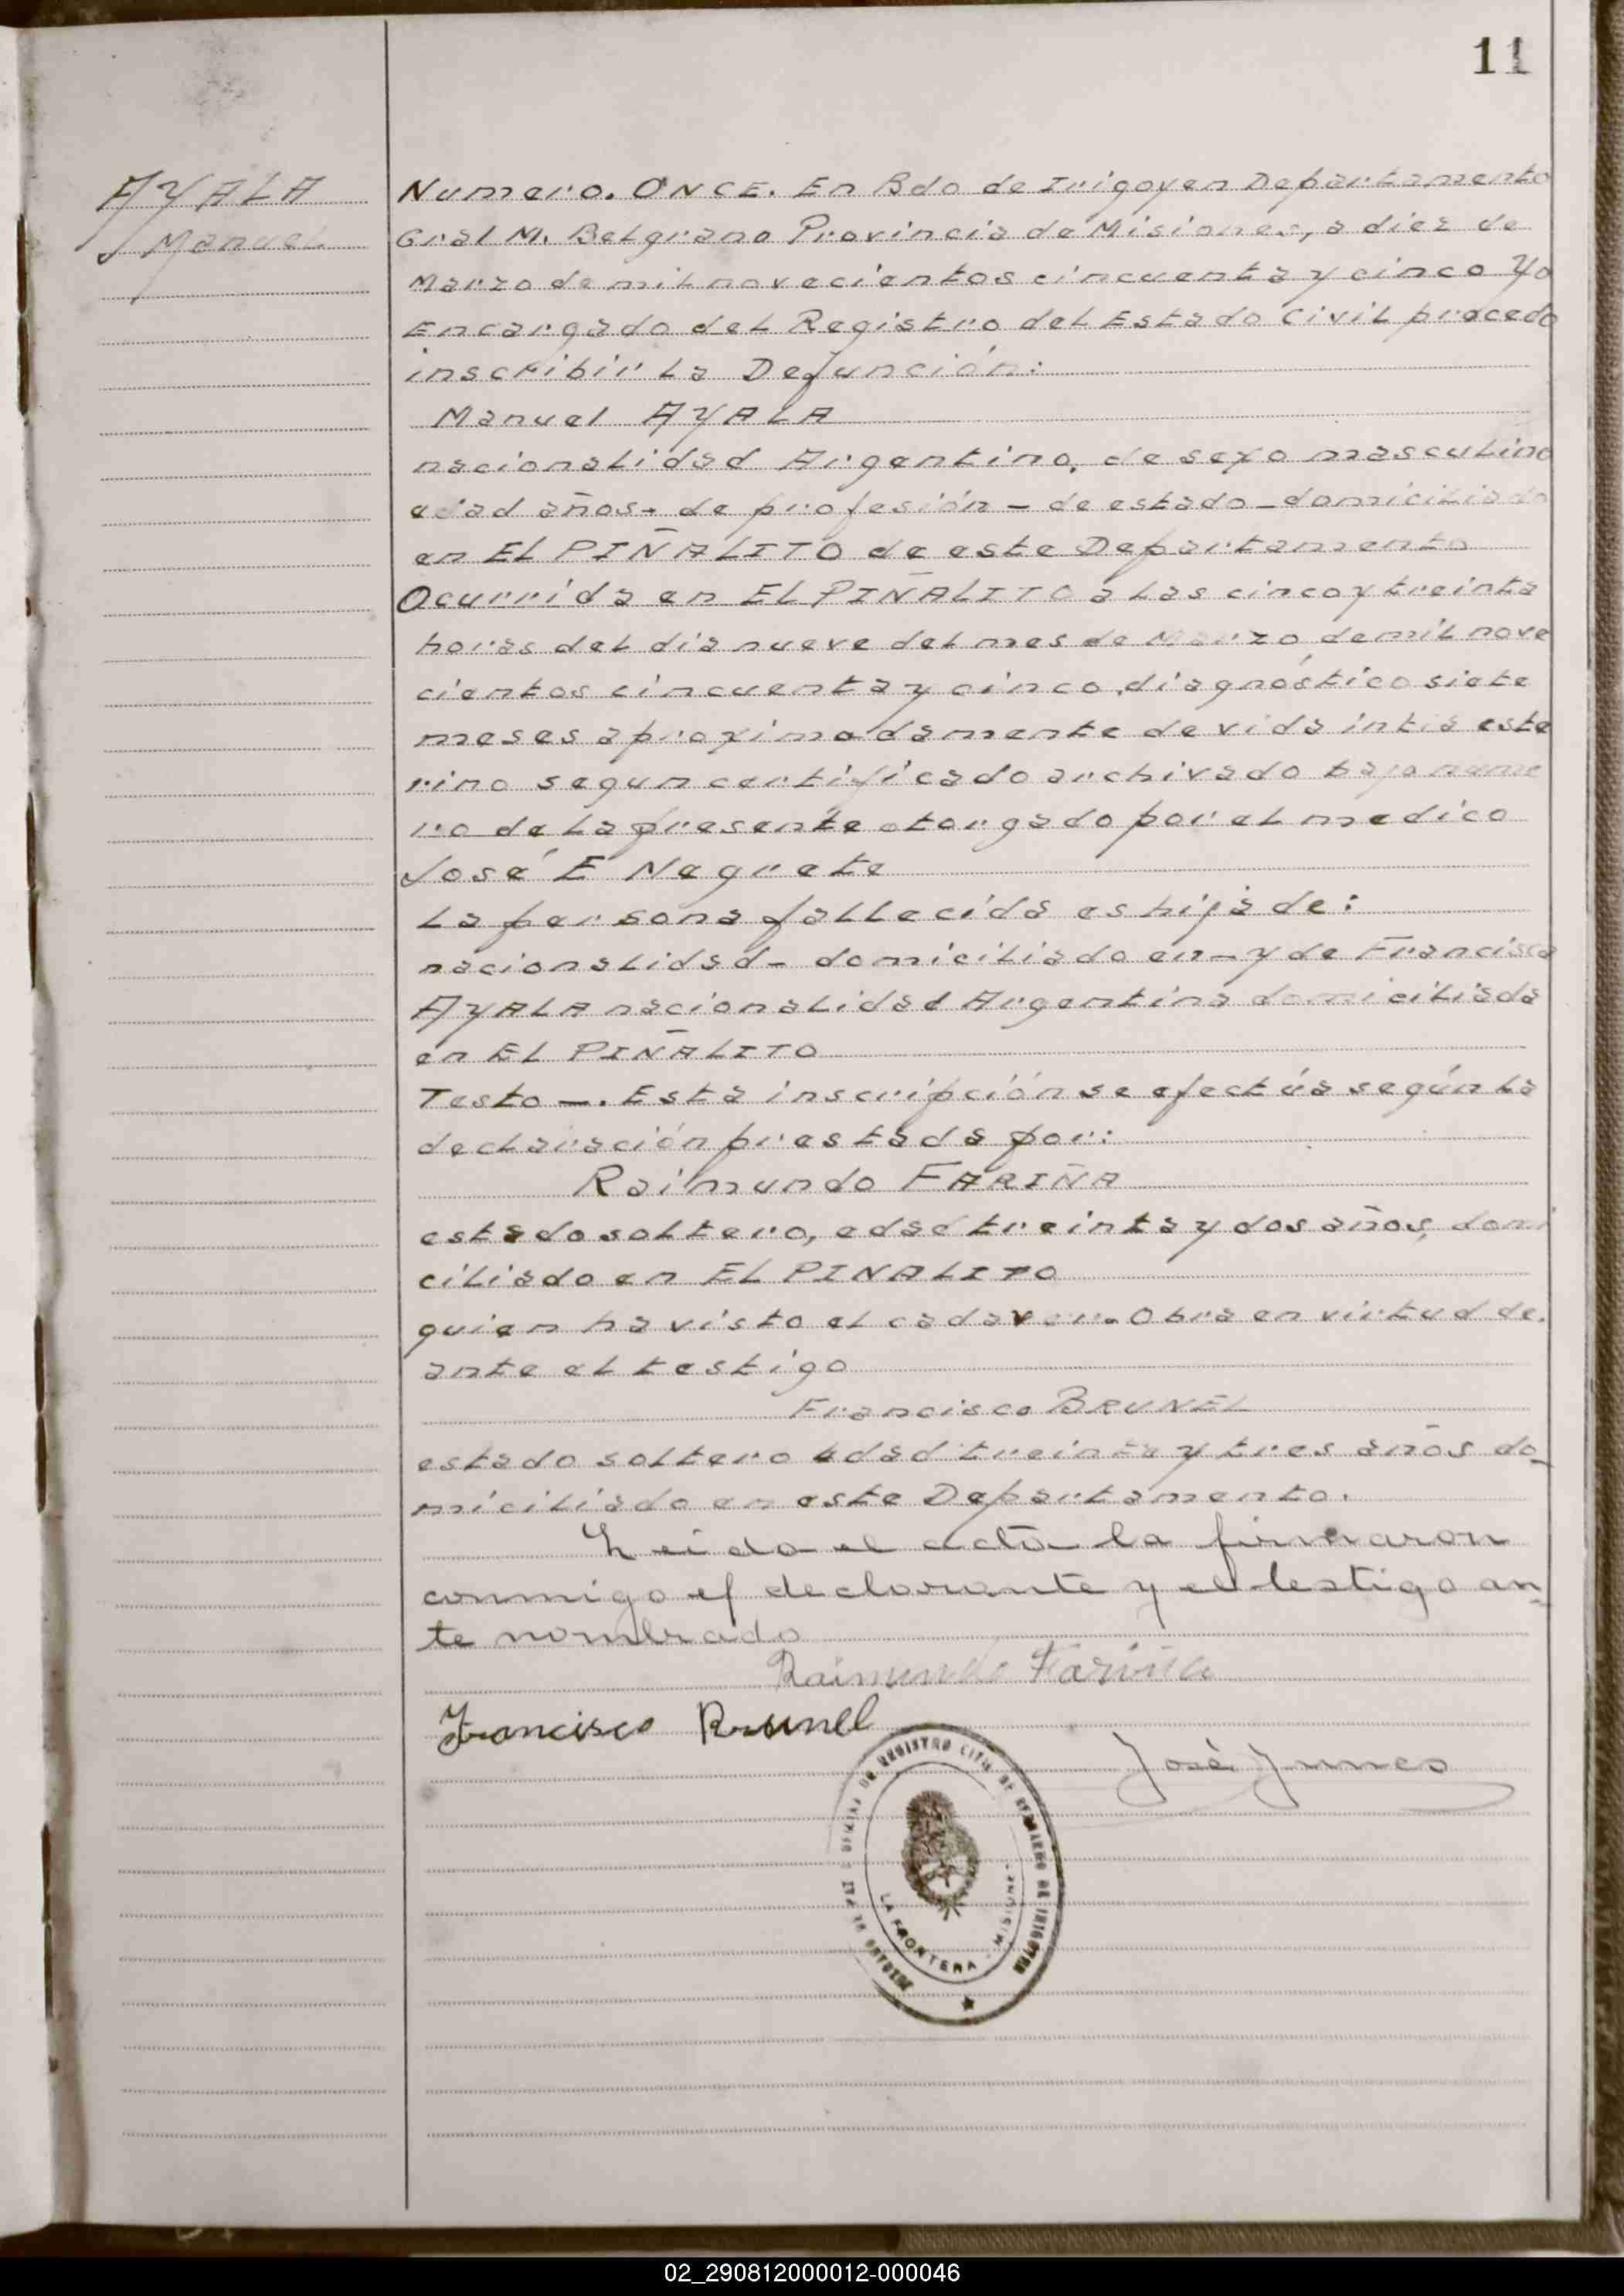 11
AYALA
Manuel
Numero. ONCE. En Bdo de Irigoyen Departamento
Gral M. Belgrano Provincia de Misiones, a diez de
Marzo de mil novecientos cincuenta y cinco Yo
Encargado del Registro del Estado Civil procedo
inscribir la Defunción:
Manuel AYALA
nacionalidad Argentino, de sexo masculino
edad años- de profesión - de estado - domiciliado
en EL PIÑALITO de este Departamento
Ocurrida en EL PIÑALITO a las cinco y treinta
horas del dia nueve del mes de Marzo de mil nove
cientos cincuenta y cinco, diagnóstico siete
meses aproximadamente de vida intra este
rino segun certificado archivado bajo nume
ro de la presente otorgado por el medico
José E Negrete
La persona fallecida es hija de:
nacionalidad - domiciliado en - y de Francisca
AYALA nacionalidad Argentina domiciliada
en EL PIÑALITO
Testo -. Esta inscripción se efectúa según la
declaración prestada por:
Raimundo FARIÑA
estado soltero, edad treinta y dos años, domi
ciliado en EL PINALITO
quien ha visto el cadaver. Obra en virtud de.
ante el testigo
Francisco BRUNEL
estado soltero edad treinta y tres años do-
miciliado en este Departamento.
Leida el acta la firmaron
conmigo el declarante y el testigo an-
te nombrado
Raimundo Fariña
Francisco Brunel
José
REGISTRO CIVIL DE BERNARDO DE IRIGOYEN
LA FRONTERA - MISIONES
02_290812000012-000046